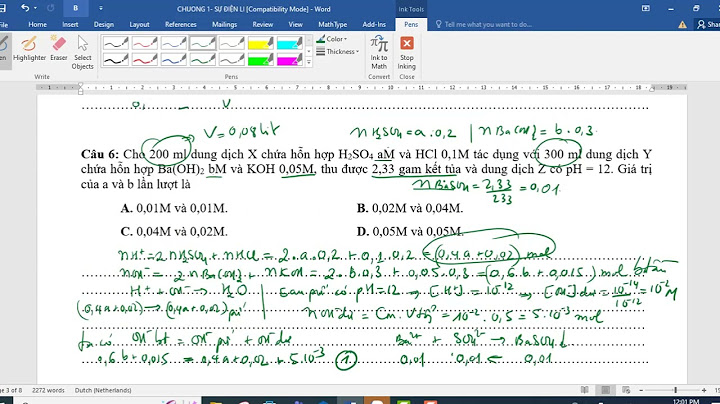 CHUONG 1- SỰ ĐIỆN LI [Compatibility Mode] - Word
Ink Tools
Insert Design Layout References Mailings Review View MathType Add-Ins Foxit PDF Pens Tell me what you want to do...
Shar
Highlighter Eraser Select Objects
Color
Thickness
Ink to Math
Stop Inking
Write Pens Convert Close
V = 0,08 lit nH2SO4 = a.0,2 | nBa(OH)2 = b.0,3
Câu 6: Cho 200 ml dung dịch X chứa hỗn hợp H₂SO₄ aM và HCl 0,1M tác dụng với 300 ml dung dịch Y
chứa hỗn hợp Ba(OH)₂ bM và KOH 0,05M, thu được 2,33 gam kết tủa và dung dịch Z có pH = 12. Giá trị
của a và b lần lượt là
nBaSO4 = 2,33/233 = 0,01
A. 0,01M và 0,01M. B. 0,02M và 0,04M.
C. 0,04M và 0,02M. D. 0,05M và 0,05M.
nH+ = 2nH2SO4 + nHCl = 2.a.0,2 + 0,1.0,2 = (0,4a + 0,02) mol
nOH- = 2nBa(OH)2 + nKOH = 2.b.0,3 + 0,05.0,3 = (0,6.b + 0,015) mol
H+ + OH- → H2O | Sau pứ có pH = 12 → [H+] = 10⁻¹² → [OH-] dư = 10⁻¹⁴/10⁻¹² = 10⁻² M
(0,4a+0,02) → (0,4a+0,02) pứ nOH- dư = CM.V = 10⁻².0,5 = 5.10⁻³ mol
ta có OH- bđ = OH- pứ + OH- dư Ba²⁺ + SO4²⁻ → BaSO4↓
0,6.b + 0,015 = 0,4a + 0,02 + 5.10⁻³ (1) 0,01 0,01 ← 0,01
3 of 8 2272 words Dutch (Netherlands)
12:01 PM